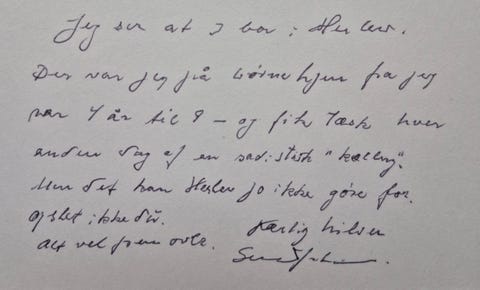 Jeg ser at I bor i Herlev.
Der var jeg på børnehjem fra jeg
var 4 år til 9 – og fik tæsk hver
anden dag af en sadistisk "kælling".
Men det kan Herlev jo ikke gøre for.
Og slet ikke du.
Alt vel fremover.
Kærlig hilsen